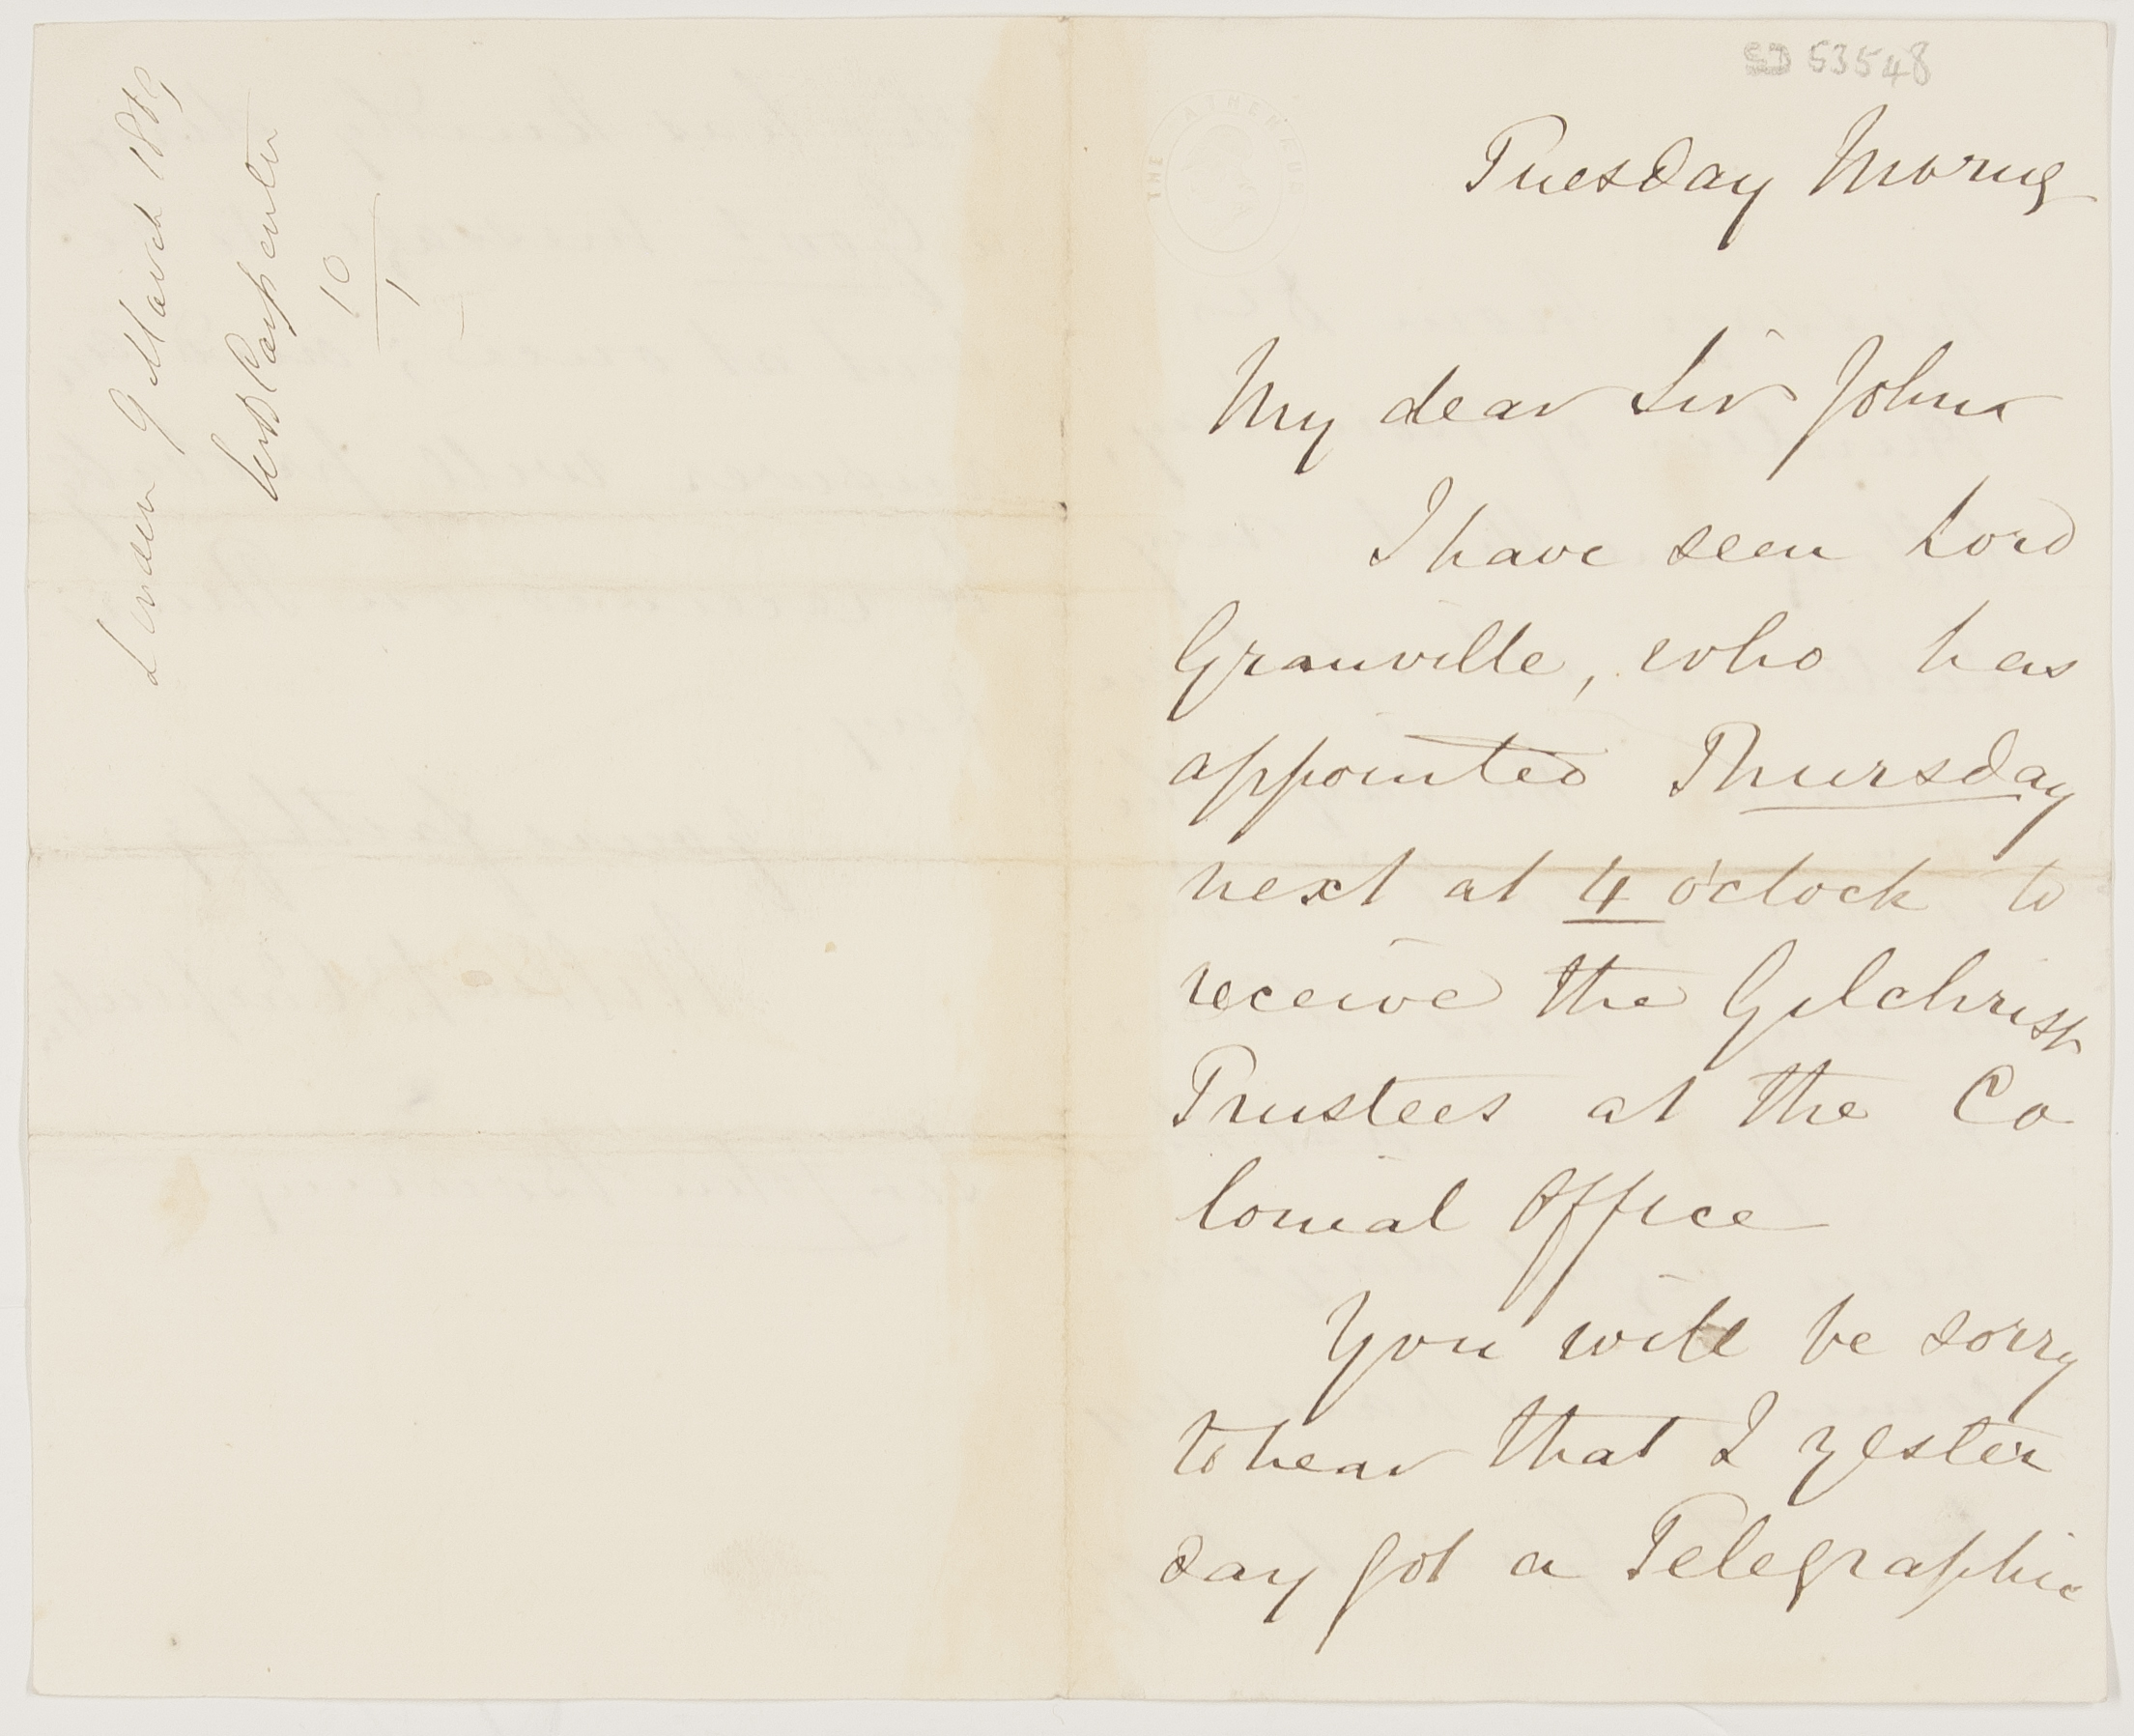 London 9 March 1869
WB Carpenter
10
1
53548
THE ATHENAEUM
Tuesday Morng
My dear Sir John
I have seen Lord
Granville, who has
appointed Thursday
next at 4 o'clock to
receive the Gilchrist
Trustees at the Co
lonial Office
You will be sorry
to hear that I yester
day got a Telegraphic